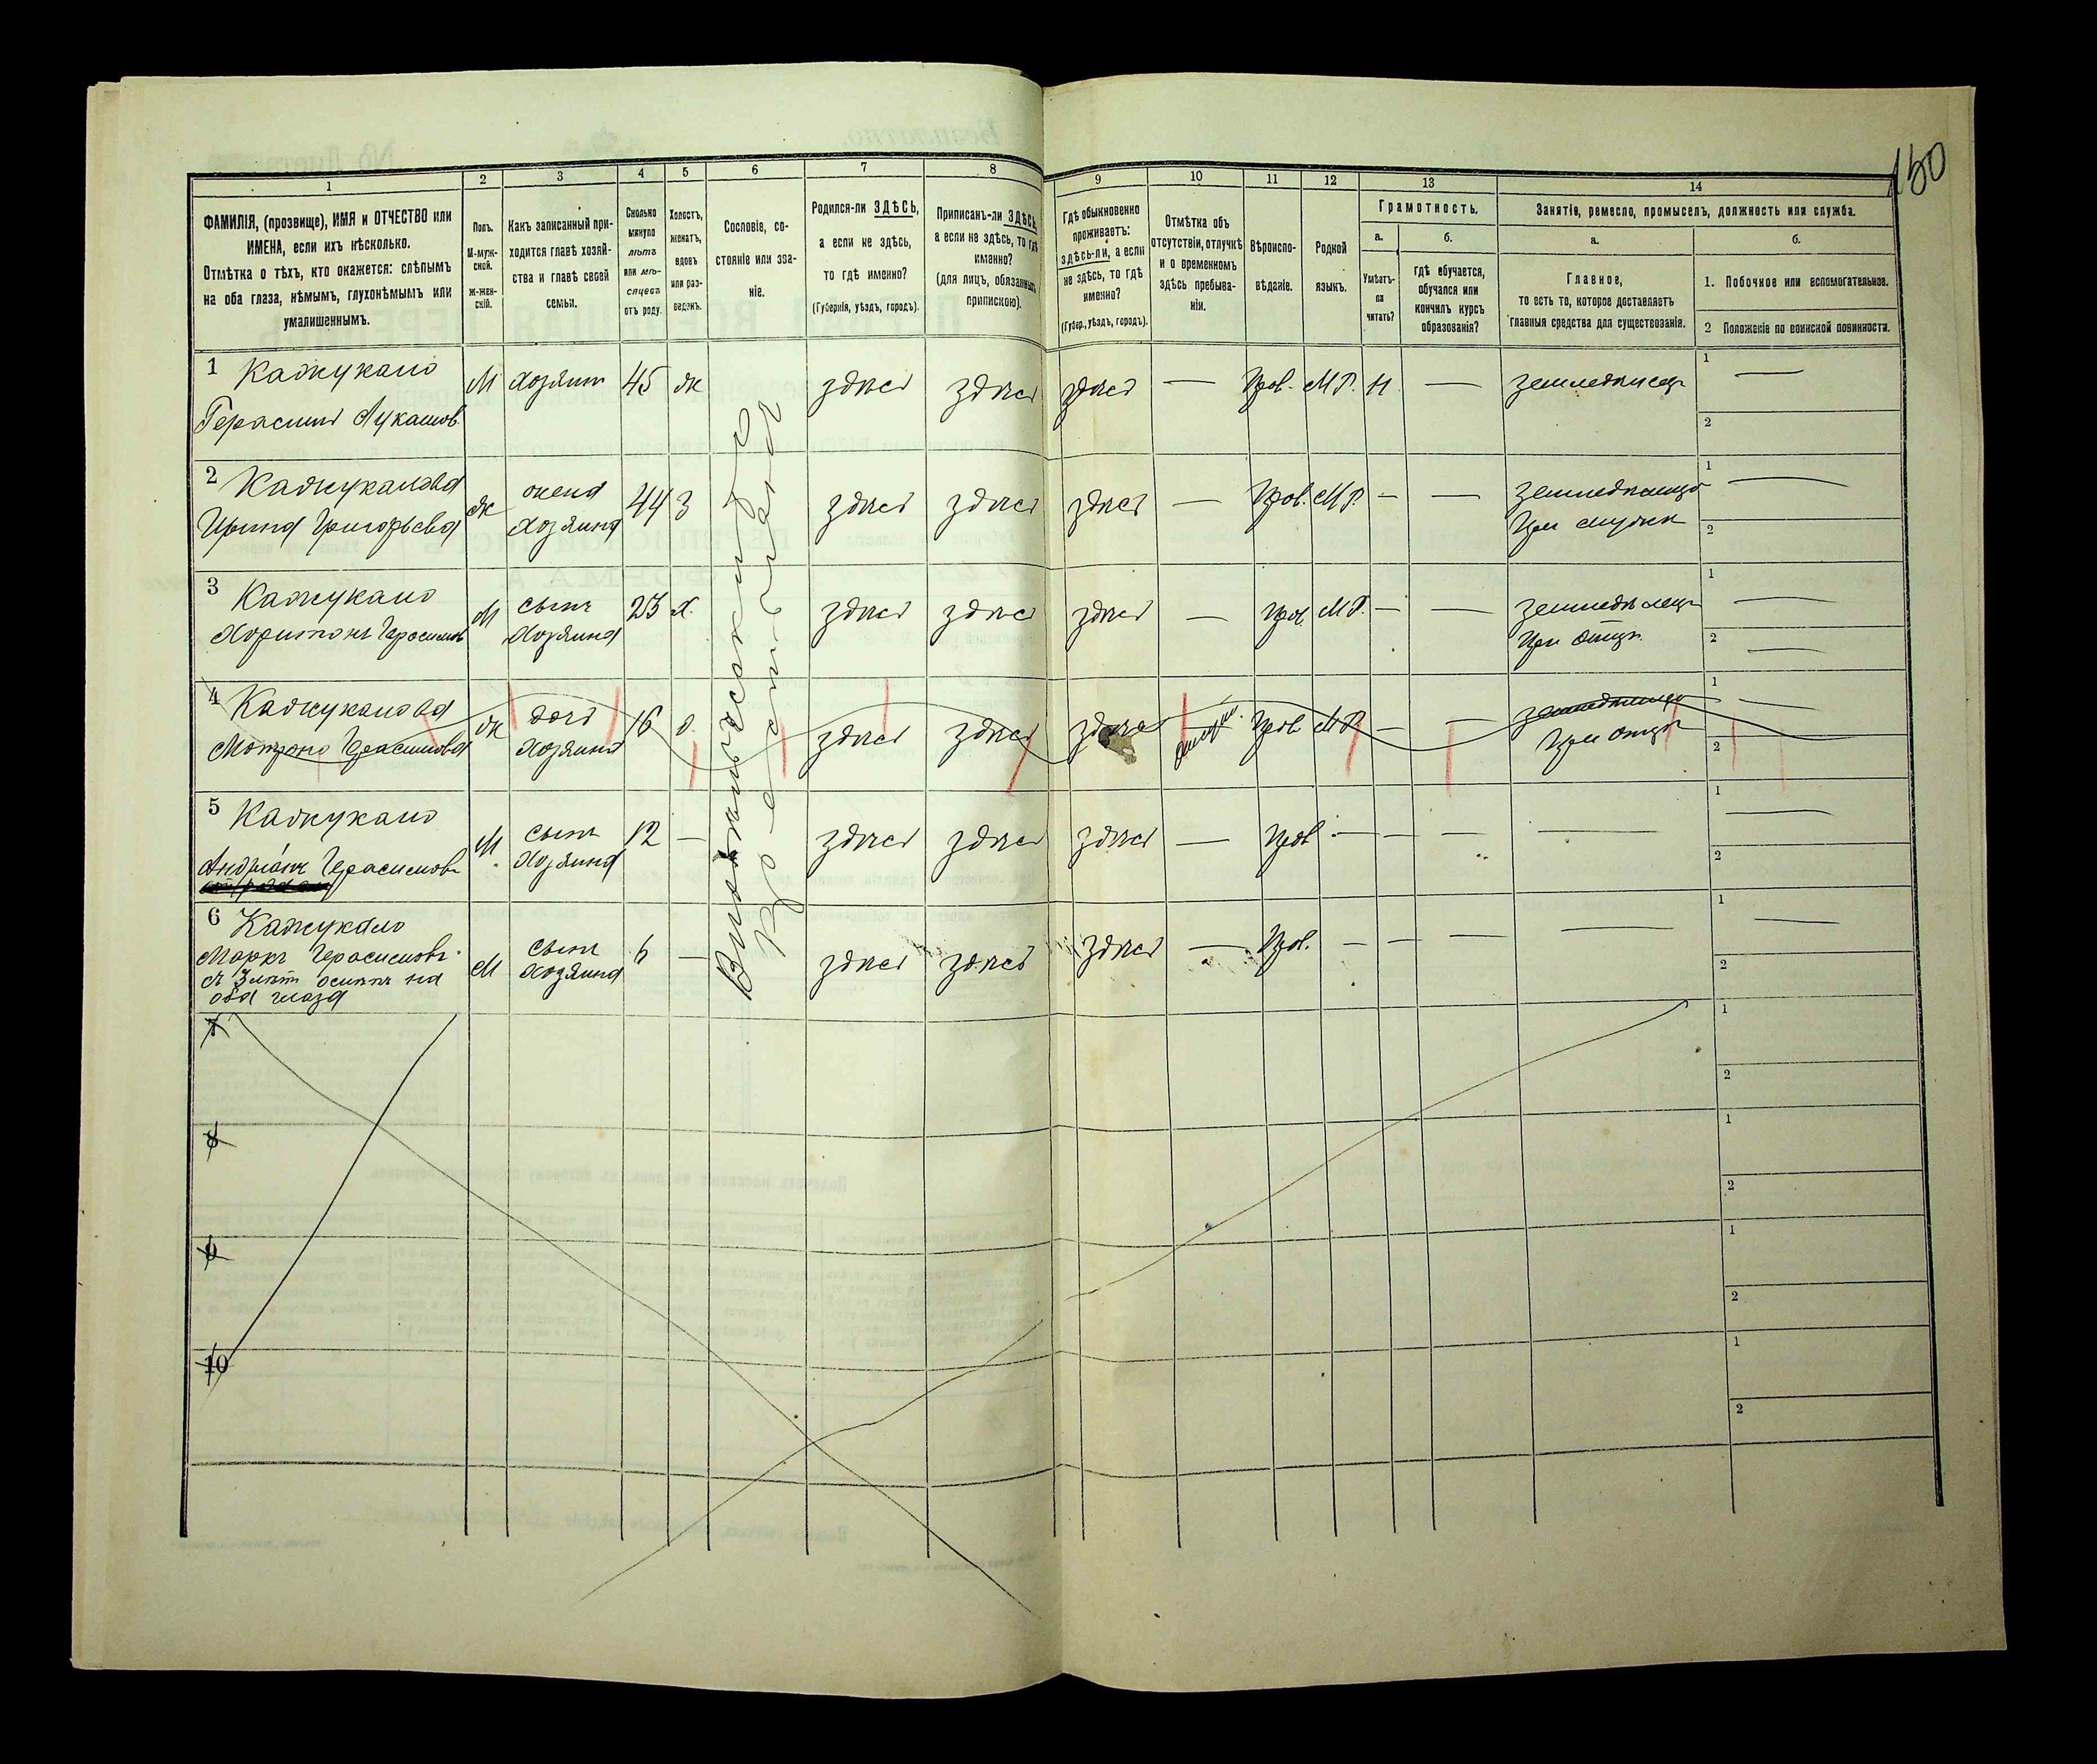 150
1 2 3 4 5 6 7 8 9 10 11 12 13 14
ФАМИЛІЯ, (прозвище), ИМЯ и ОТЧЕСТВО или
ИМЕНА, если ихъ нѣсколько.
Отмѣтка о тѣхъ, кто окажется: слѣпымъ
на оба глаза, нѣмымъ, глухонѣмымъ или
умалишеннымъ.
Полъ.
М-муж-
ской.
Ж-жен-
скій.
Какъ записанный при-
ходится главѣ хозяй-
ства и главѣ своей
семьи.
Сколько
минуло
лѣтъ
или мѣ-
сяцевъ
отъ роду.
Холостъ,
женатъ,
вдовъ
или раз-
веденъ.
Сословіе, со-
стояніе или зва-
ніе.
Родился-ли ЗДѢСЬ,
а если не здѣсь,
то гдѣ именно?
(Губернія, уѣздъ, городъ).
Приписанъ-ли ЗДѢСЬ,
а если не здѣсь, то гдѣ
именно?
(для лицъ, обязанныхъ
припискою).
Гдѣ обыкновенно
проживаетъ:
здѣсь-ли, а если
не здѣсь, то гдѣ
именно?
(Губер., уѣздъ, городъ).
Отмѣтка объ
отсутствіи, отлучкѣ
и о временномъ
здѣсь пребыва-
ніи.
Вѣроиспо-
вѣданіе.
Родной
языкъ.
Грамотность.
а.
Умѣетъ-
ли
читать?
б.
гдѣ обучается,
обучался или
кончилъ курсъ
образованія?
Занятіе, ремесло, промыселъ, должность или служба.
а.
Главное,
то есть то, которое доставляетъ
главныя средства для существованія.
б.
1. Побочное или вспомогательное.
2 Положеніе по воинской повинности.
1 Кажукало
Герасимъ Лукашов.
М хозяинъ 45 ж здѣсь здѣсь здѣсь — Прав. М Р. Н. — земледѣлецъ 1 —
2
2 Кажукалова
Ирина Григорьева
ж жена
хозяина
44 З здѣсь здѣсь здѣсь — Прав. М Р. — — земледѣлица
при мужѣ
1 —
2
3 Кажукало
Харитонъ Герасимовъ
М сынъ
хозяина
23 х. здѣсь здѣсь здѣсь — Прав. М Р. — — земледѣлецъ
при отцѣ
1 —
2 —
4 Кажукалова
Матрона Герасимова
ж дочь
хозяина
16 д. здѣсь здѣсь здѣсь Прав М Р — — земледѣлица
при отцѣ
1 —
2
5 Кажукало
Андріанъ Герасимовъ
М сынъ
хозяина
12 — здѣсь здѣсь здѣсь — Прав — — — — 1 —
2
6 Кажукало
Маркъ Герасимовъ
съ 3 лѣтъ осліпъ на
оба глаза
М сынъ
хозяина
6 — здѣсь здѣсь здѣсь — Прав. — — — — 1 —
2
7
1
2
8
1
2
9
1
2
10
1
2